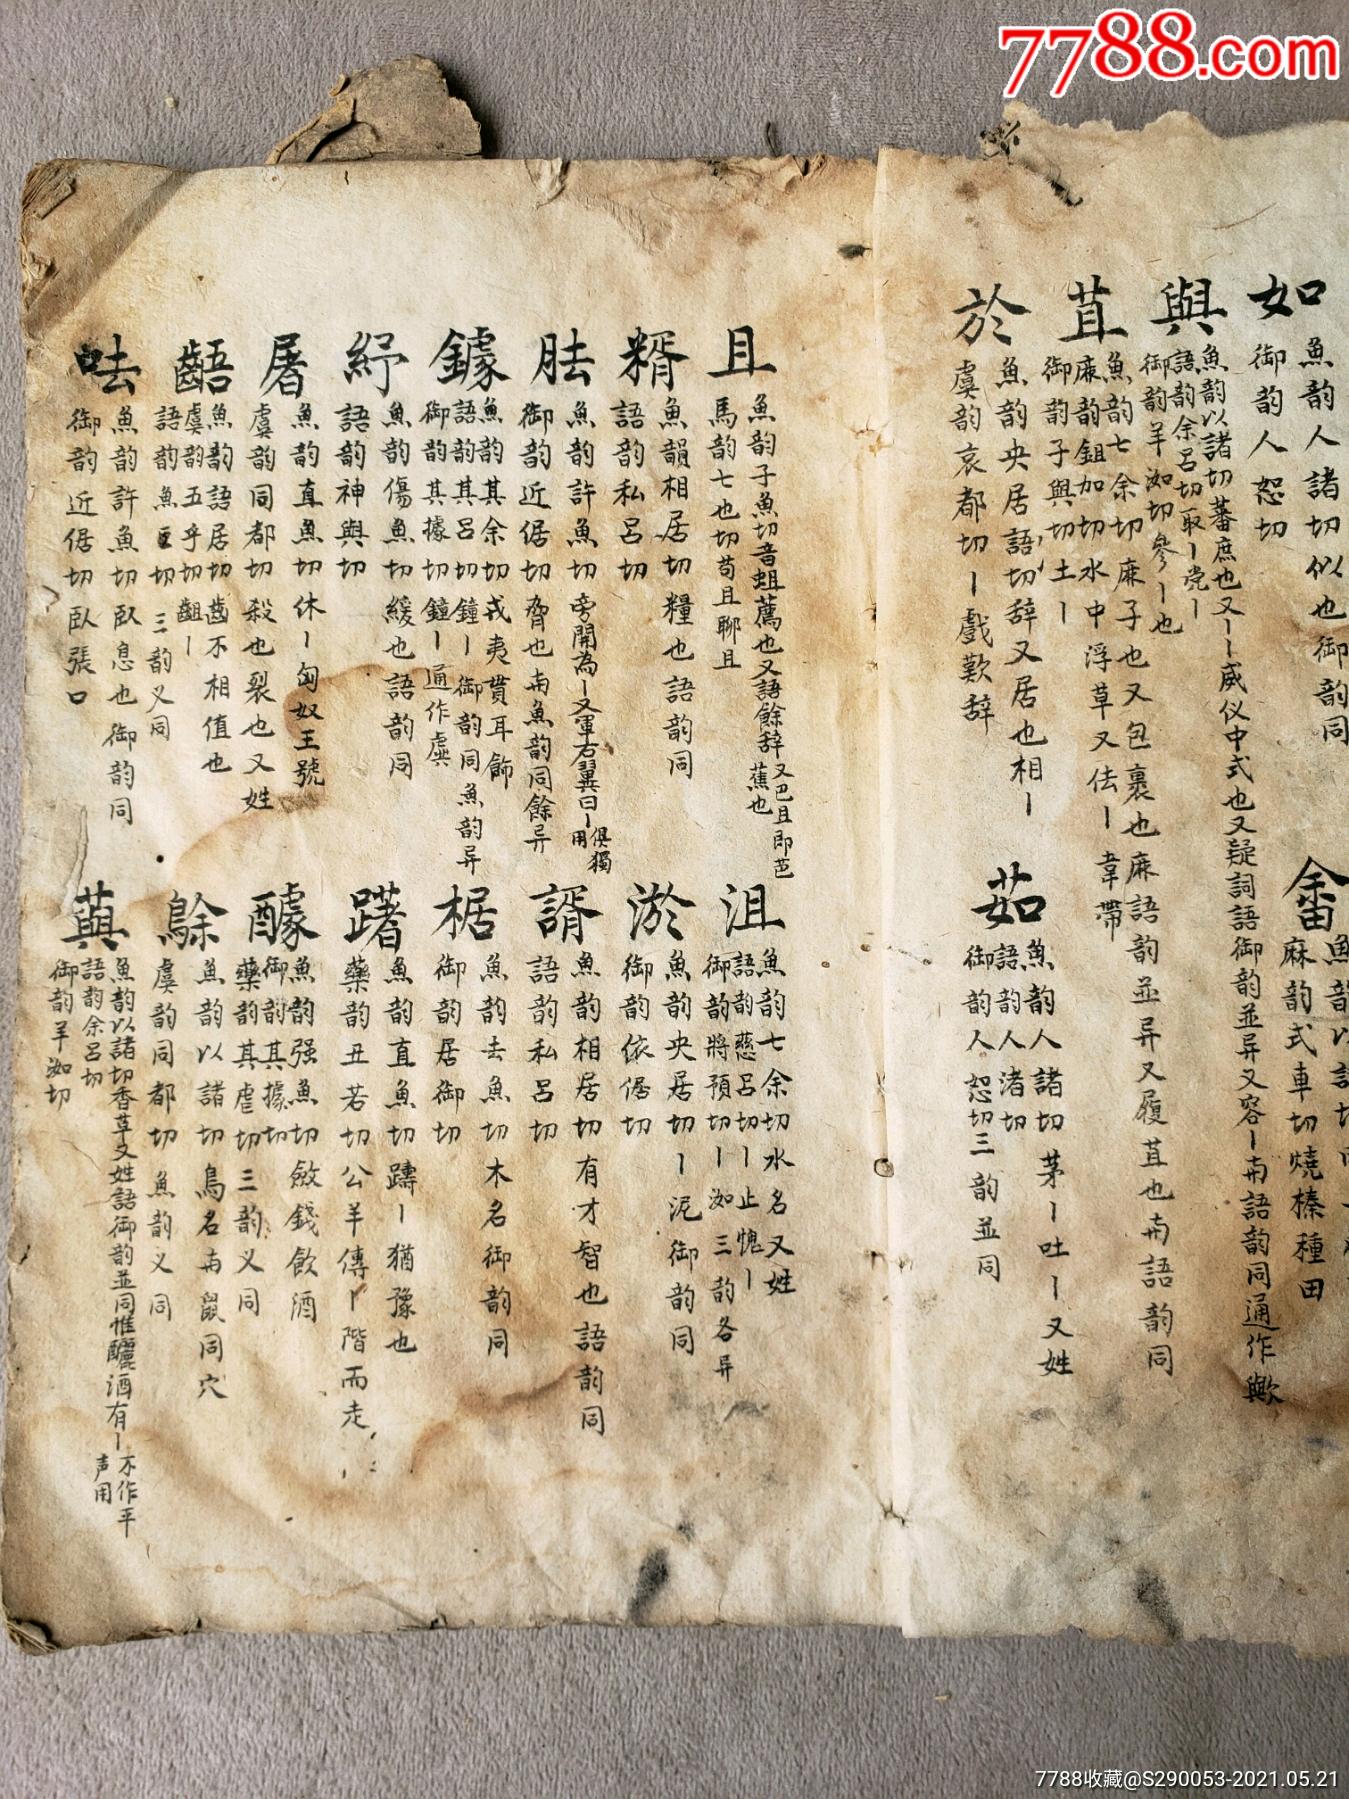 7788.com
如
魚韵人諸切似也御韵同
御韵人恕切
與
魚韵以諸切蕃庶也又丨丨威仪中式也又疑詞語御韵並异又容丨與語韵同通作歟
語韵余呂切取丨党丨
御韵羊洳切參丨也
苴
魚韵七余切麻子也又包裹也麻語韵並异又履苴也與語韵同
麻韵鉏加切水中浮草又伝丨韋帶
御韵子與切土丨
於
魚韵央居語切辞又居也相丨
虞韵哀都切丨戲歎辞
畬
麻韵式車切燒榛種田
茹
魚韵人諸切茅丨吐丨又姓
語韵人渚切
御韵人恕切三韵並同
且
魚韵子魚切音蛆薦也又語餘辞又巴且即芭蕉也
馬韵七也切苟且聊且
糈
魚韻相居切糧也語韵同
語韵私呂切
胠
魚韵許魚切旁開為丨又軍右翼曰丨俱獨用
御韵近倨切脅也與魚韵同餘异
鐻
魚韵其余切戎夷貫耳飾
語韵其呂切鐘丨御韵同魚韵异
御韵其據切鐘丨通作虡
紓
魚韵傷魚切緩也語韵同
語韵神與切
屠
魚韵直魚切休丨匈奴王號
虞韵同都切殺也裂也又姓
齬
魚韵語居切齒不相值也
虞韵五乎切齟丨
語韵魚巨切三韵义同
呿
魚韵許魚切臥息也御韵同
御韵近倨切臥張口
沮
魚韵七余切水名又姓
語韵慈呂切丨止愧丨
御韵將預切丨洳三韵各异
淤
魚韵央居切丨泥御韵同
御韵依倨切
諝
魚韵相居切有才智也語韵同
語韵私呂切
椐
魚韵去魚切木名御韵同
御韵居御切
躇
魚韵直魚切躊丨猶豫也
藥韵丑若切公羊傳丨階而走
醵
魚韵强魚切斂錢飲酒
御韵其據切
藥韵其虐切三韵义同
鵌
魚韵以諸切鳥名與鼠同穴
虞韵同都切魚韵义同
藇
魚韵以諸切香草又姓語御韵並同惟釃酒有丨不作平声用
語韵余呂切
御韵羊洳切
7788收藏@S290053-2021.05.21